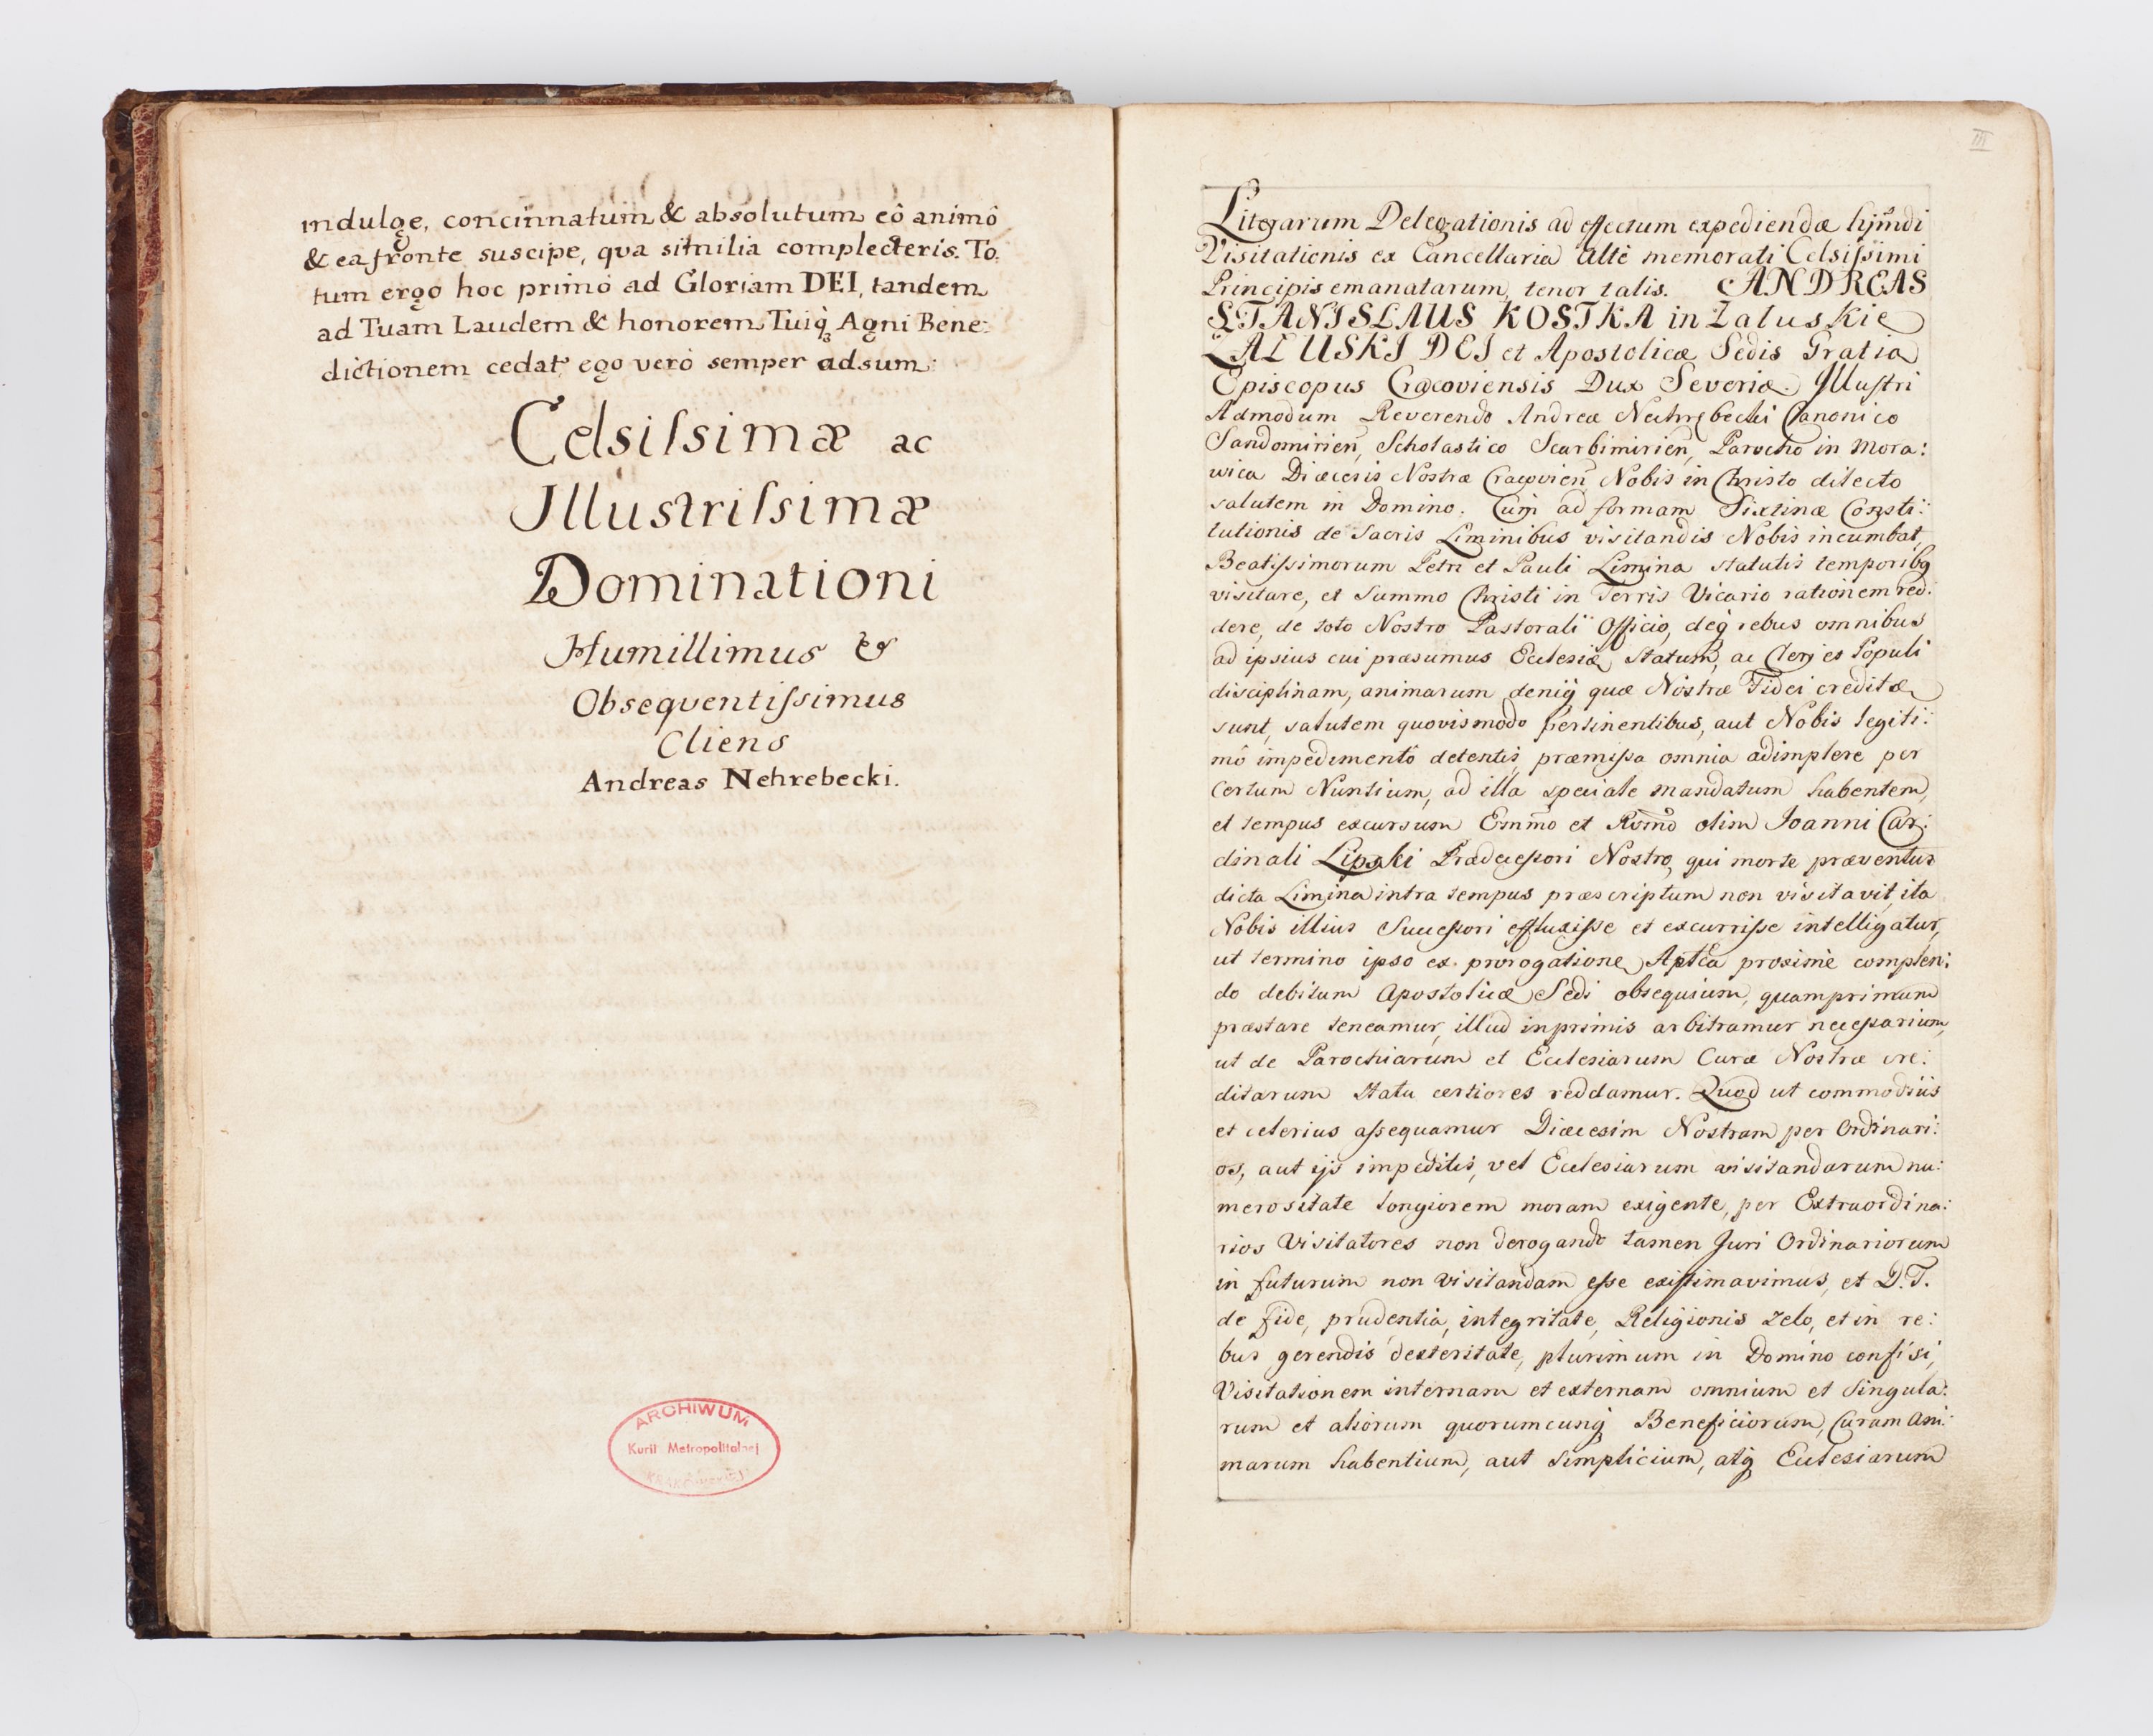 indulge, concinnatum & absolutum eô animô
& ea fronte suscipe, qva similia complecteris. To:
tum ergo hoc primò ad Gloriam DEI, tandem
ad Tuam Laudem & honorem Tuiq̨ Agni Bene:
dictionem cedat ego verò semper adsum:
Celsiſsimæ ac
Illustriſsimæ
Dominationi
Humillimus &
Obseqventiſsimus
Cliens
Andreas Nehrebecki.
ARCHIWUM
Kurii Metropolitalnej
KRAKOWSKIEJ
III
Literarum Delegationis ad effectum expediendæ hjmdi
Visitationis ex Cancellaria altè memorati Celsiſsimi
Principis emanatarum, tenor talis. ANDREAS
STANISLAUS KOSTKA in Zaluskie
ZALUSKI DEI et Apostolicæ Sedis Gratia
Episcopus Cracoviensis Dux Severiæ. Illuſtri
Admodum Reverendo Andreæ Nechrebecki Canonico
Sandomirień, Scholastico Scarbimirień, Parocho in Mora:
wica Diæcesis Nostræ Cracovień Nobis in Christo dilecto
salutem in Domino. Cum ad formam Sixtinæ Consti:
tutionis de Sacris Liminibus visitandis Nobis incumbat,
Beatiſsimorum Petri et Pauli Limina statutis temporibq
visitare, et Summo Christi in Terris Vicario rationem red:
dere, de toto Nostro Pastorali Officio, deq̨ rebus omnibus
ad ipsius cui præsumus Ecclesiæ Statum, ac Cleri et Populi
disciplinam, animarum deniq̨ quæ Nostræ Fidei creditæ
sunt, salutem quovismodo pertinentibus, aut Nobis legiti:
mô impedimentô detentis, præmiſsa omnia adimplere per
Certum Nuntium, ad illa speciale mandatum habentem,
et tempus excursum Emm̃o et Rsmõ olim Joanni Car:
dinali Lipski Prædeceſsori Nostro, qui morte præventus
dicta Limina intra tempus præscriptum non visitavit, ita
Nobis illius Succeſsori effluxiſse et excurriſse intelligatur,
ut termino ipso ex prorogatione Aptca proximè complen:
do debitum Apostolicæ Sedi obsequium, quamprimum
præstare teneamur, illud inprimis arbitramur neceſsarium,
ut de Parochiarum et Ecclesiarum Curæ Nostræ cre:
ditarum statu certiores reddamur. Quod ut commodiùs
et celerius aſsequamur Diæcesim Nostram per Ordinari:
os, aut ijs impeditis, vel Ecclesiarum visitandarum nu:
merositate longiorem moram exigente, per Extraordina:
rios Visitatores non derogando tamen Juri Ordinariorum
in futurum non visitandam eſse exiſtimavimus, et D.T.
de fide, prudentia, integritate, Religionis zelo, et in re:
bus gerendis dexteritate, plurimum in Domino confisi,
Visitationem internam et externam omnium et singula:
rum et aliorum quorumcunq̨ Beneficiorum, Curam Ani:
marum habentium, aut simplicium, atq̨ Ecclesiarum